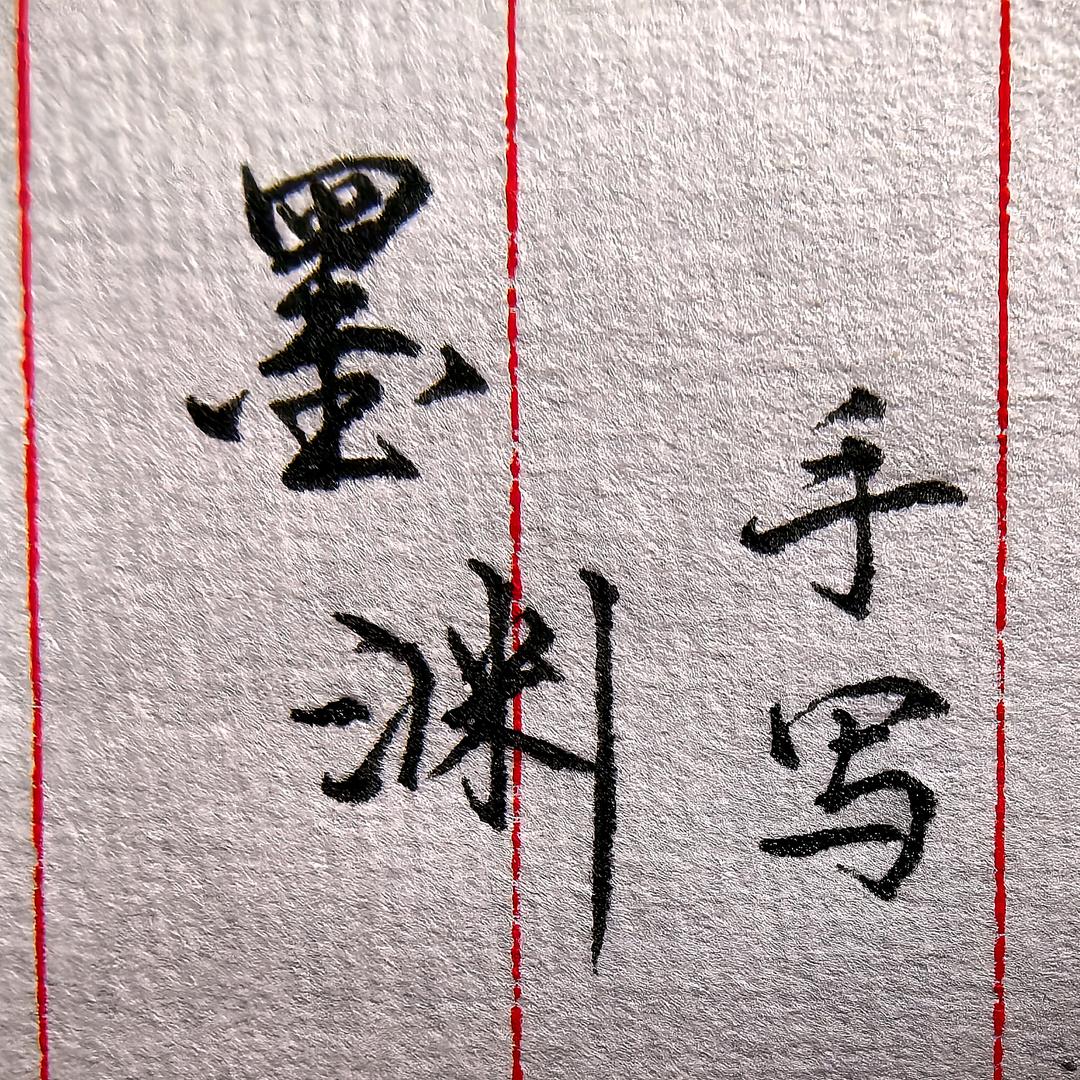 手写
墨渊